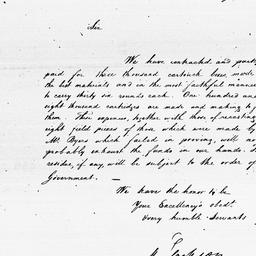 Sir
We have contracted and partly
paid for three thousand cartouch boxes made
the best materials and in the most faithful manner
to carry thirty six rounds each. One hundred and
eight thousand cartridges are made and making to
them. These expences, together with those of recasting
eight field pieces of three which were made by
Mr. Byers which failed in proving, will no
probably exhaust the funds in our hands. The
residue, if any, will be subject to the order of
Government. —
We have the honor to be
Your Excellency's obedt.
very humble Servants